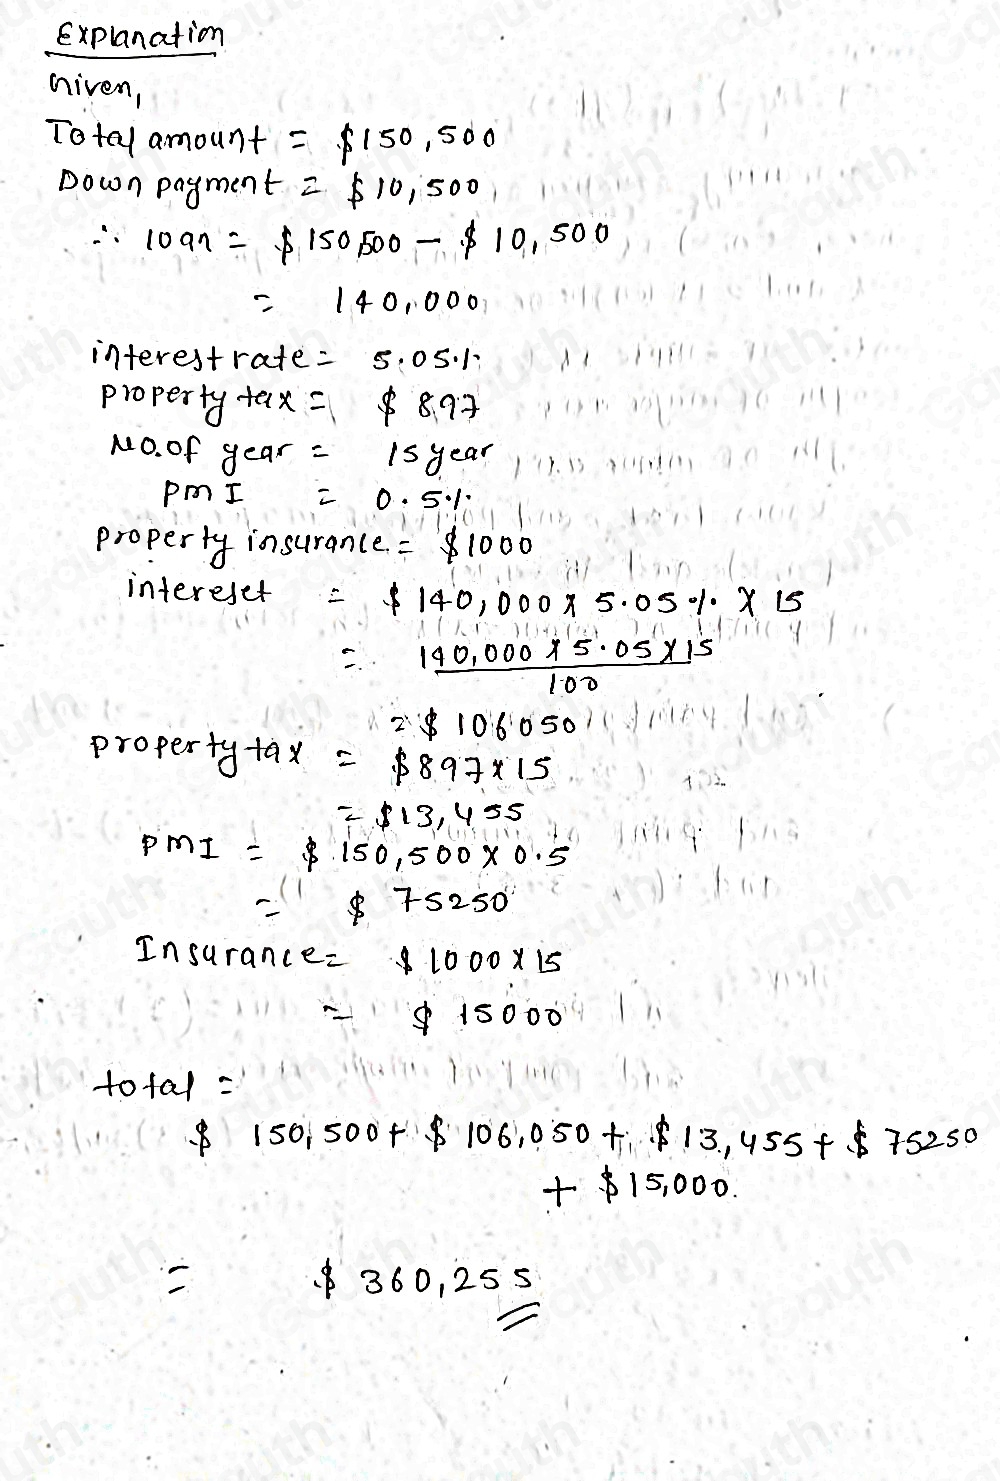 Explanation
Given,
Total amount = $150,500
Down payment = $10,500
∴ loan = $150500 - $10,500
= 140,000
interest rate = 5.05%
property tax = $897
No. of year = 15 year
PMI = 0.5%
property insurance = $1000
intereset = $140,000 x 5.05% x 15
= 140,000 x 5.05 x 15
100
= $106050
property tax = $897 x 15
= $13,455
PMI = $150,500 x 0.5
= $75250
Insurance = $1000 x 15
= $15000
total =
$150,500 + $106,050 + $13,455 + $75250
+ $15,000.
= $360,255